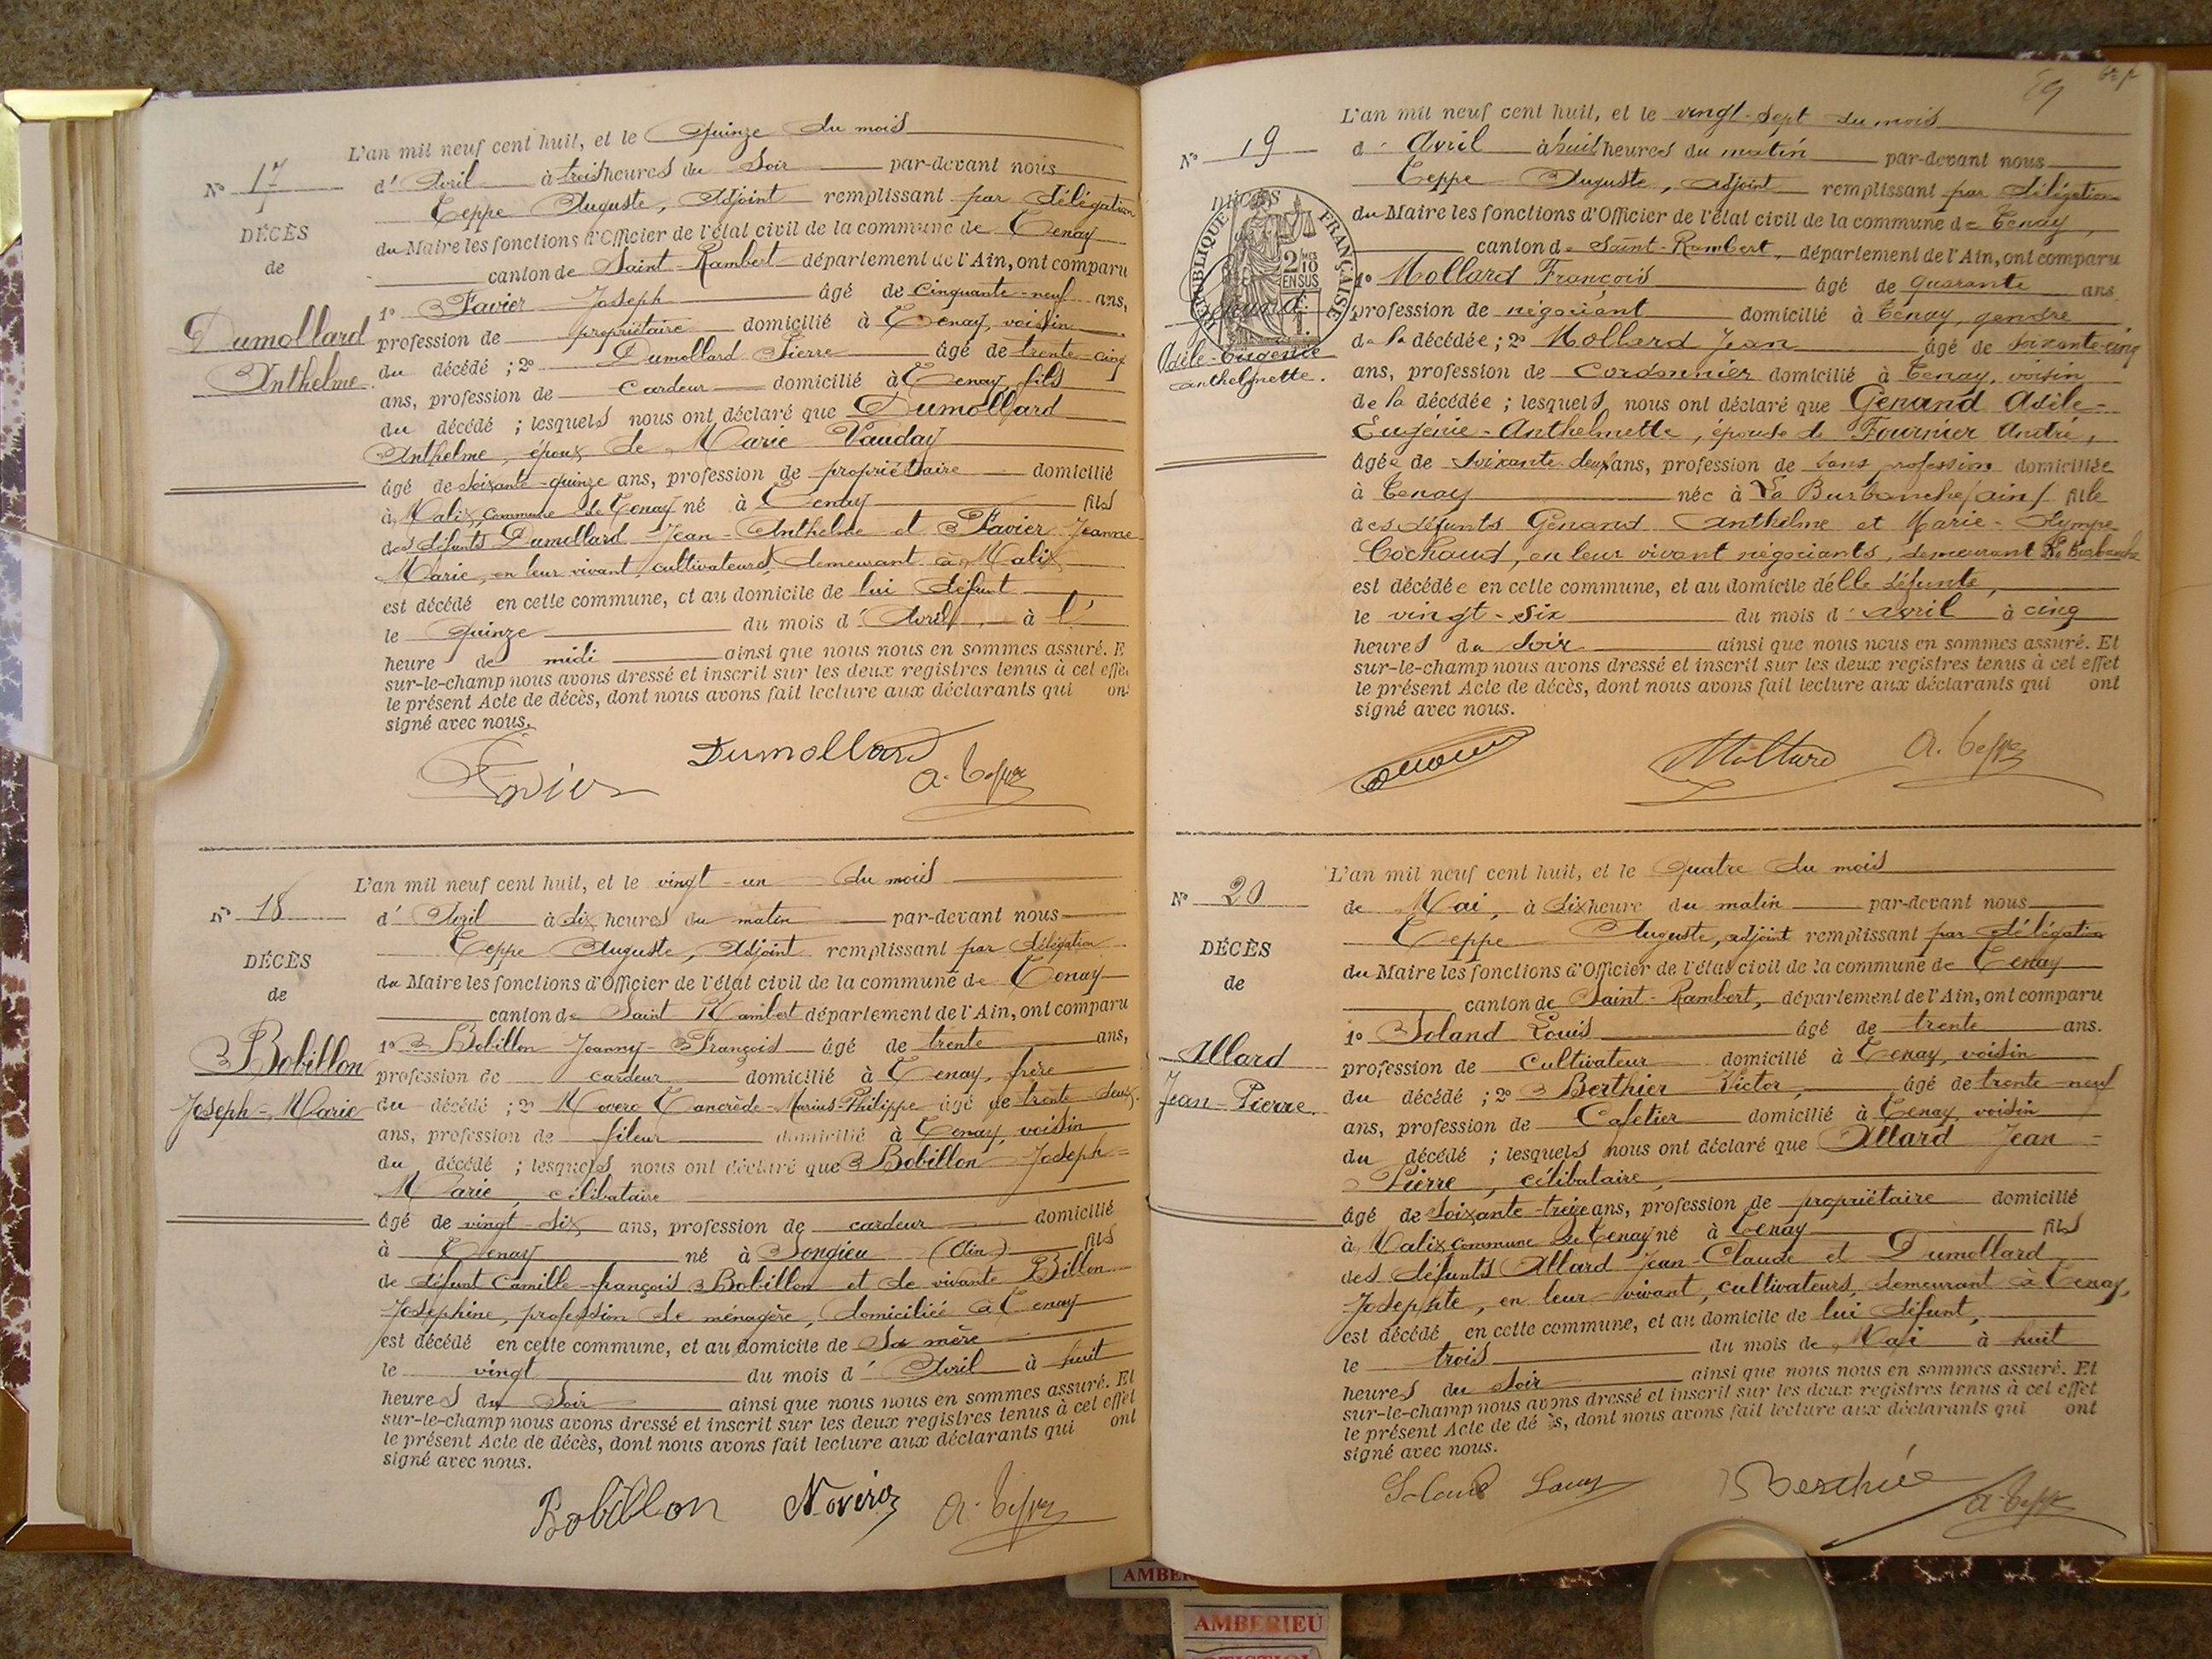 L'an mil neuf cent huit, et le quinze du mois
N° 17
d'Avril à trois heures du soir par-devant nous
Teppe Auguste, Adjoint remplissant par délégation
DÉCÈS
du Maire les fonctions d'Officier de l'état civil de la commune de Tenay
de
canton de Saint-Rambert département de l'Ain, ont comparu
1° Favier Joseph âgé de cinquante-neuf ans,
Dumollard
profession de propriétaire domicilié à Tenay, voisin
Anthelme.
du décédé ; 2° Dumollard Pierre âgé de trente-cinq
ans, profession de cardeur domicilié à Tenay, fils
du décédé ; lesquels nous ont déclaré que Dumollard
Anthelme, époux de Marie Vauday
âgé de soixante-quinze ans, profession de propriétaire domicilié
à Malix, commune de Tenay né à Tenay fils
des défunts Dumollard Jean-Anthelme et Favier Jeanne
Marie, en leur vivant, cultivateurs, demeurant à Malix
est décédé en cette commune, et au domicile de lui défunt
le quinze du mois d'Avril, à l'
heure de midi ainsi que nous nous en sommes assuré. E
sur-le-champ nous avons dressé et inscrit sur les deux registres tenus à cet effe
le présent Acte de décès, dont nous avons fait lecture aux déclarants qui on
signé avec nous.
Favier Dumollard A. Teppe
L'an mil neuf cent huit, et le vingt-un du mois
N° 18
d'Avril à six heures du matin par-devant nous
Teppe Auguste, Adjoint remplissant par délégation
DÉCÈS
du Maire les fonctions d'Officier de l'état civil de la commune de Tenay
de
canton de Saint Rambert département de l'Ain, ont comparu
Bobillon
1° Bobillon Joanny-François âgé de trente ans,
profession de cardeur domicilié à Tenay, frère
Joseph-Marie
du décédé ; 2° Novero Tancrède-Marius-Philippe âgé de trente-deux
ans, profession de fileur domicilié à Tenay, voisin
du décédé ; lesquels nous ont déclaré que Bobillon Joseph=
Marie, célibataire
âgé de vingt-six ans, profession de cardeur domicilié
à Tenay né à Songieu (Ain) fils
de défunt Camille-François Bobillon et de vivante Billon
Joséphine, profession de ménagère, domiciliée à Tenay
est décédé en cette commune, et au domicile de Sa mère
le vingt du mois d'Avril à huit
heures du Soir ainsi que nous nous en sommes assuré. Et
sur-le-champ nous avons dressé et inscrit sur les deux registres tenus à cet effet
le présent Acte de décès, dont nous avons fait lecture aux déclarants qui ont
signé avec nous.
Bobillon Novero A. Teppe
19
L'an mil neuf cent huit, et le vingt-sept du mois
N° 19
d'Avril à huit heures du matin par-devant nous
Teppe Auguste, adjoint remplissant par délégation
DÉCÈS
RÉPUBLIQUE FRANÇAISE
2/10 EN SUS
du Maire les fonctions d'Officier de l'état civil de la commune de Tenay,
canton de Saint-Rambert, département de l'Ain, ont comparu
1° Mollard François âgé de quarante ans
profession de négociant domicilié à Tenay, gendre
Adèle-Eugénie
Anthelmette.
de la décédée ; 2° Mollard Jean âgé de soixante-cinq
ans, profession de Cordonnier domicilié à Tenay, voisin
de la décédée ; lesquels nous ont déclaré que Génand Adèle-
Eugénie-Anthelmette, épouse de Fournier André,
âgée de soixante-deux ans, profession de sans profession domiciliée
à Tenay née à La Burbanche (ain) fille
des défunts Génand Anthelme et Marie-Olympe
Cochaud, en leur vivant négociants, demeurant La Burbanche
est décédée en cette commune, et au domicile d'elle défunte,
le vingt-six du mois d'avril à cinq
heures du soir ainsi que nous nous en sommes assuré. Et
sur-le-champ nous avons dressé et inscrit sur les deux registres tenus à cet effet
le présent Acte de décès, dont nous avons fait lecture aux déclarants qui ont
signé avec nous.
Mollard A. Teppe
L'an mil neuf cent huit, et le quatre du mois
N° 20
de Mai, à dix heure du matin par-devant nous
Teppe Auguste, adjoint remplissant par délégation
DÉCÈS
du Maire les fonctions d'Officier de l'état civil de la commune de Tenay
de
canton de Saint-Rambert, département de l'Ain, ont comparu
1° Soland Louis âgé de trente ans.
Allard
profession de Cultivateur domicilié à Tenay, voisin
Jean-Pierre.
du décédé ; 2° Berthier Victor, âgé de trente-neuf
ans, profession de Cafetier domicilié à Tenay, voisin
du décédé ; lesquels nous ont déclaré que Allard Jean=
Pierre, célibataire,
âgé de soixante-treize ans, profession de propriétaire domicilié
à Malix commune de Tenay né à Tenay fils
des défunts Allard Jean-Claude et Dumollard
Josephte, en leur vivant, cultivateurs, demeurant à Tenay,
est décédé en cette commune, et au domicile de lui défunt,
le trois du mois de Mai à huit
heures du Soir ainsi que nous nous en sommes assuré. Et
sur-le-champ nous avons dressé et inscrit sur les deux registres tenus à cet effet
le présent Acte de dé ès, dont nous avons fait lecture aux déclarants qui ont
signé avec nous.
Soland Louis Berthier A. Teppe
AMBERIEU